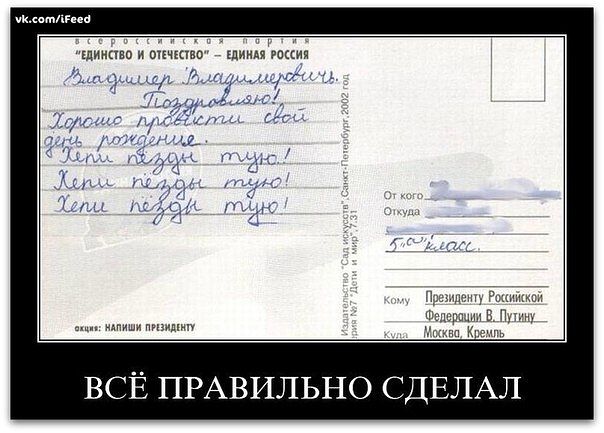 vk.com/iFeed
всероссийская партия
"ЕДИНСТВО И ОТЕЧЕСТВО" – ЕДИНАЯ РОССИЯ
Владимер Владимеровичь.
Поздровляю!
Хорошо провисти свой
день рождения.
Хепи пёзды тую!
Хепи пёзды тую!
Хепи пёзды тую!
акция: НАПИШИ ПРЕЗИДЕНТУ
Издательство "Сад искусств", Санкт-Петербург, 2002 год
серия №7 "Дети и мир", 7.31
От кого
Откуда
5 "а" класс.
Кому Президенту Российской
Федерации В. Путину
Куда Москва, Кремль
ВСЁ ПРАВИЛЬНО СДЕЛАЛ